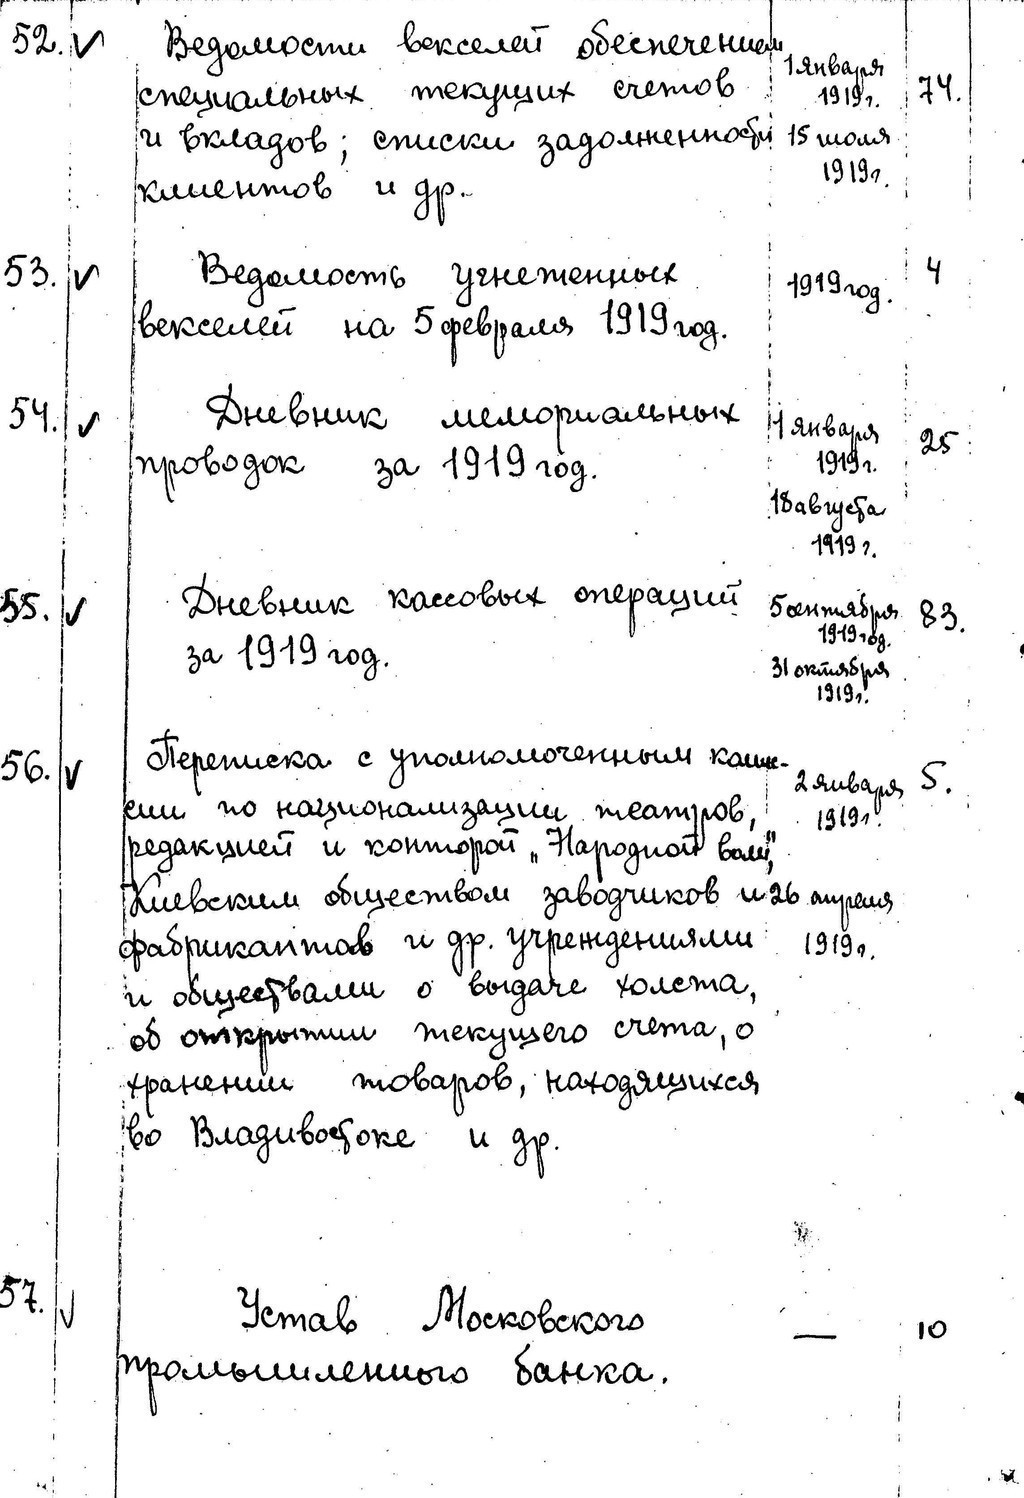 52. Ведомости векселей обеспечением
специальных текущих счетов
и вкладов; списки задолженности
клиентов и др.
1 января
1919 г.
15 июля
1919 г.
74.
53. Ведомость учнетенных
векселей на 5 февраля 1919 год.
1919 год.
4
54. Дневник мемориальных
проводок за 1919 год.
1 января
1919 г.
18 августа
1919 г.
25
55. Дневник кассовых операций
за 1919 год.
5 сентября
1919 год.
31 октября
1919 г.
83.
56. Переписка с уполномоченным комис-
сии по национализации театров,
редакцией и конторой „Народной воли",
Киевским обществом заводчиков и
фабрикантов и др. учреждениями
и обществами о выдаче холста,
об открытии текущего счета, о
хранении товаров, находящихся
во Владивостоке и др.
2 января
1919 г.
26 апреля
1919 г.
5.
57. Устав Московского
промышленного банка.
—
10